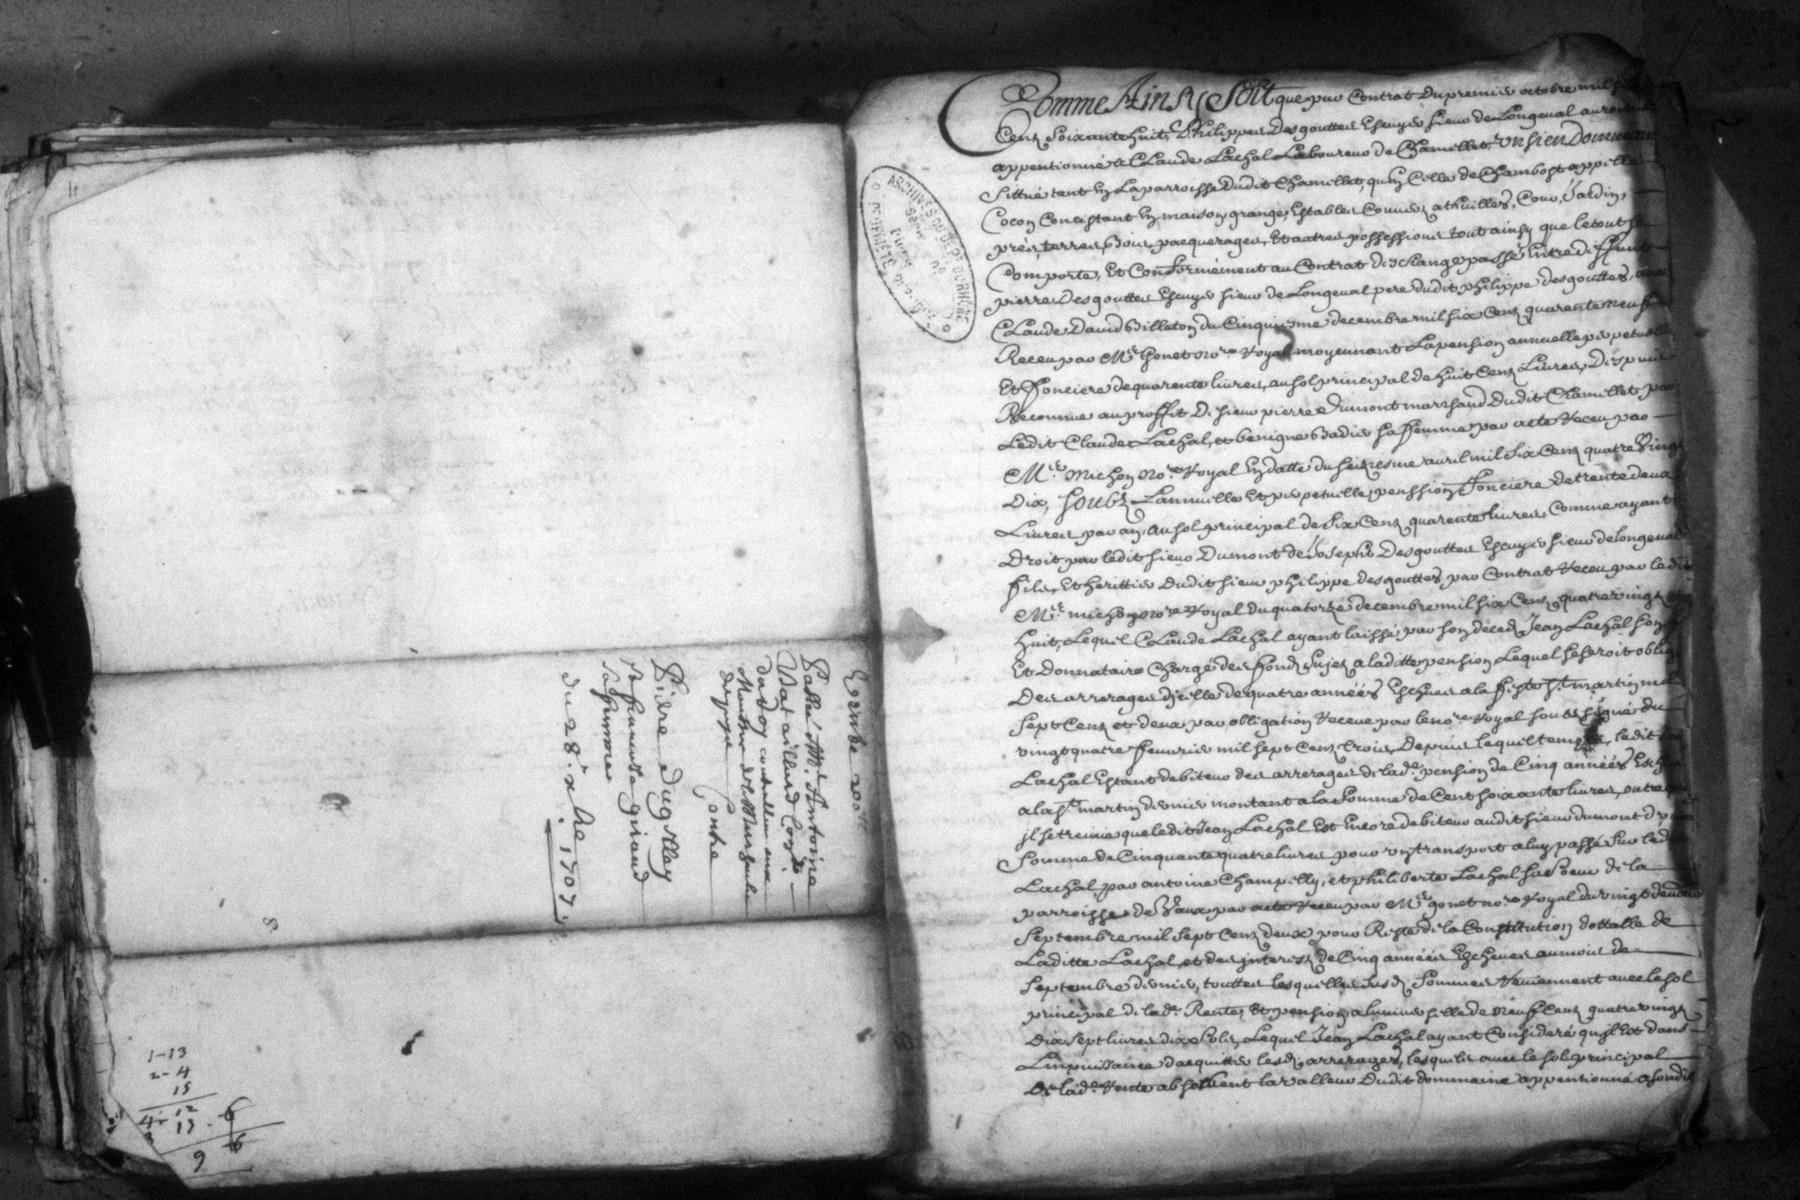 Eg. grosse 20 ss
Passé Mr. Antoine
Vataillard Con.er
du Roy
Contre
Pierre Dugellay
et francoise giraud
sa femme
du 28.e xbre 1707
1-13
2-4
15
4- 12
13 - 6
9 6
ARCHIVES DU DÉP.T DU RHÔNE
PROPRIÉTÉ PUBLIQUE
Comme Ainsy Soit que par Contrat du premier octobre mil six
Cens soixante huit, Philippes Desgouttes Escuyer sieur de Longeval auroit
appentionné a Claude Lachal Laboureur de Chamellet, un sien Dommaine
sittué tant en la parroisse dudit Chamillet, qu'en Celle de Chambost appellé
Cocon Concistant en maison, grange, Estables Couvers a thuilles, Cour, Jardin,
prés, terres, Bois, pacquerages, Et autres possessions tout ainsy que le tout se
Comporte, Et Conformément au Contrat dEschange passé Entre deffunt
pierre Desgouttes Escuyer sieur de Longeval pere dudit philippe desgouttes, avec
Claude David Billeton du Cinquiesme decembre mil six Cens quarente neuf
Receu par Mre. Gonet no.re Royal moyennant La pension annuelle perpetuelle
Et fonciere de quarente livres, au sol principal de huit Cens Livres, Despuis
Reconnue au proffit de sieur pierre Dumont marchand dudit Chamellet par
Ledit Claude Lachal, et benigne Badier sa femme par acte Receu par
Mre. Michon no.re Royal En datte du seiziesme avril mil six Cens quatre Vingt
Dix, Soubz Lannuelle Et perpetuelle penssion fonciere de trente deux
Livres par an, au sol principal de six Cens quarente livres, Comme ayant
Droit par ledit sieur Dumont de Joseph Desgouttes Escuyer sieur de Longeval
fils, Et herittier dudit sieur philippe desgouttes, par Contrat Receu par le dit
Mre. michon no.re Royal du quatorze decembre mil six Cens quatre vingt
huit, Lequel Claude Lachal ayant laissé par son deced Jean Lachal son fils
Et Donnataire Chargé des fonds sujet a la ditte pension Lequel se seroit obligé
Des arrerages dicelle de quatre années Escheues a la feste st. martin mil
sept Cens et deux par obligation Receue par le no.re Royal soussigné du
vingt quatre feuvrier mil sept Cens trois, Depuis lequel temps, ledit Jean
Lachal Estant debiteur des arrerages de lad. pension de Cinq années Escheues
a la st. martin dernier montant a la somme de Cent soixante livres, outre quoy
il se treuve que ledit Jean Lachal Est Encore debiteur audit sieur dumont dune
somme de Cinquante quatre livres pour un transport a luy passé sur le dit
Lachal, par antoine Champelly, et philiberte Lachal sa soeur de la
parroisse de Vaux par acte Receu par Mre. gonet no.re Royal du vingt deux
Septembre mil sept Cens deux pour Reste de la Constitution dottalle de
Laditte Lachal, et des interest de Cinq années Escheues au mois de
Septembre dernier, touttes lesquelles susd. Sommes Reviennent avec le sol
principal de lad. Rente, Et pension a l'universelle de neuf Cens quatre vingt
Dix sept livres dix sols, Lequel Jean Lachal ayant Consideré qu'il Est dans
L'impuissance d'acquitter lesd. arrerages, lesquels avec le sol principal
De lad. Rente absorbent la valleur dudit dommaine appentionné a sondit